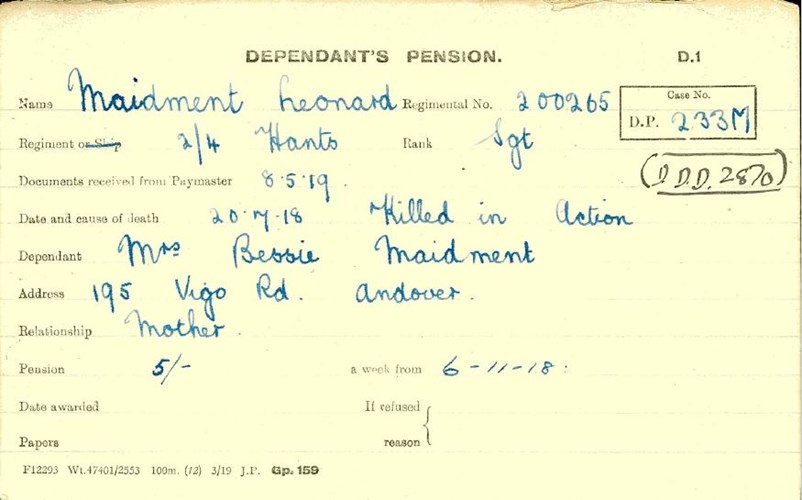 DEPENDANT'S PENSION. D.1
Name Maidment Leonard Regimental No. 200265
Case No.
D.P. 233M
Regiment or Ship 2/4 Hants Rank Sgt
(D.D.D. 2870)
Documents received from Paymaster 8.5.19.
Date and cause of death 20.7.18 Killed in Action
Dependant Mrs Bessie Maidment
Address 195 Vigo Rd. Andover.
Relationship Mother.
Pension 5/- a week from 6-11-18.
Date awarded If refused
Papers reason
F12293 Wt.47401/2553 100m. (12) 3/19 J.P. Gp. 159